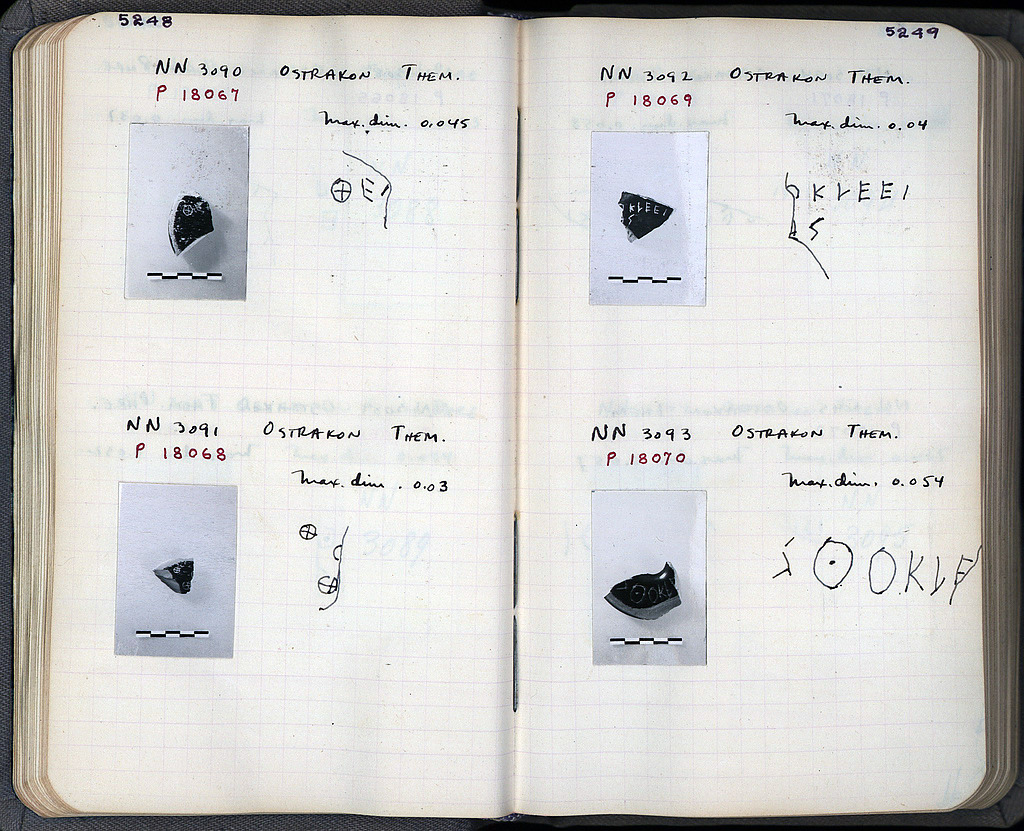 5248
NN 3090 OSTRAKON THEM.
P 18067
Max. dim. 0.045
⊕ E I
NN 3091 OSTRAKON THEM.
P 18068
Max. dim. 0.03
⊕
⊕
5249
NN 3092 OSTRAKON THEM.
P 18069
Max. dim. 0.04
KLEEI
NN 3093 OSTRAKON THEM.
P 18070
Max. dim. 0.054
⊙ OKLE